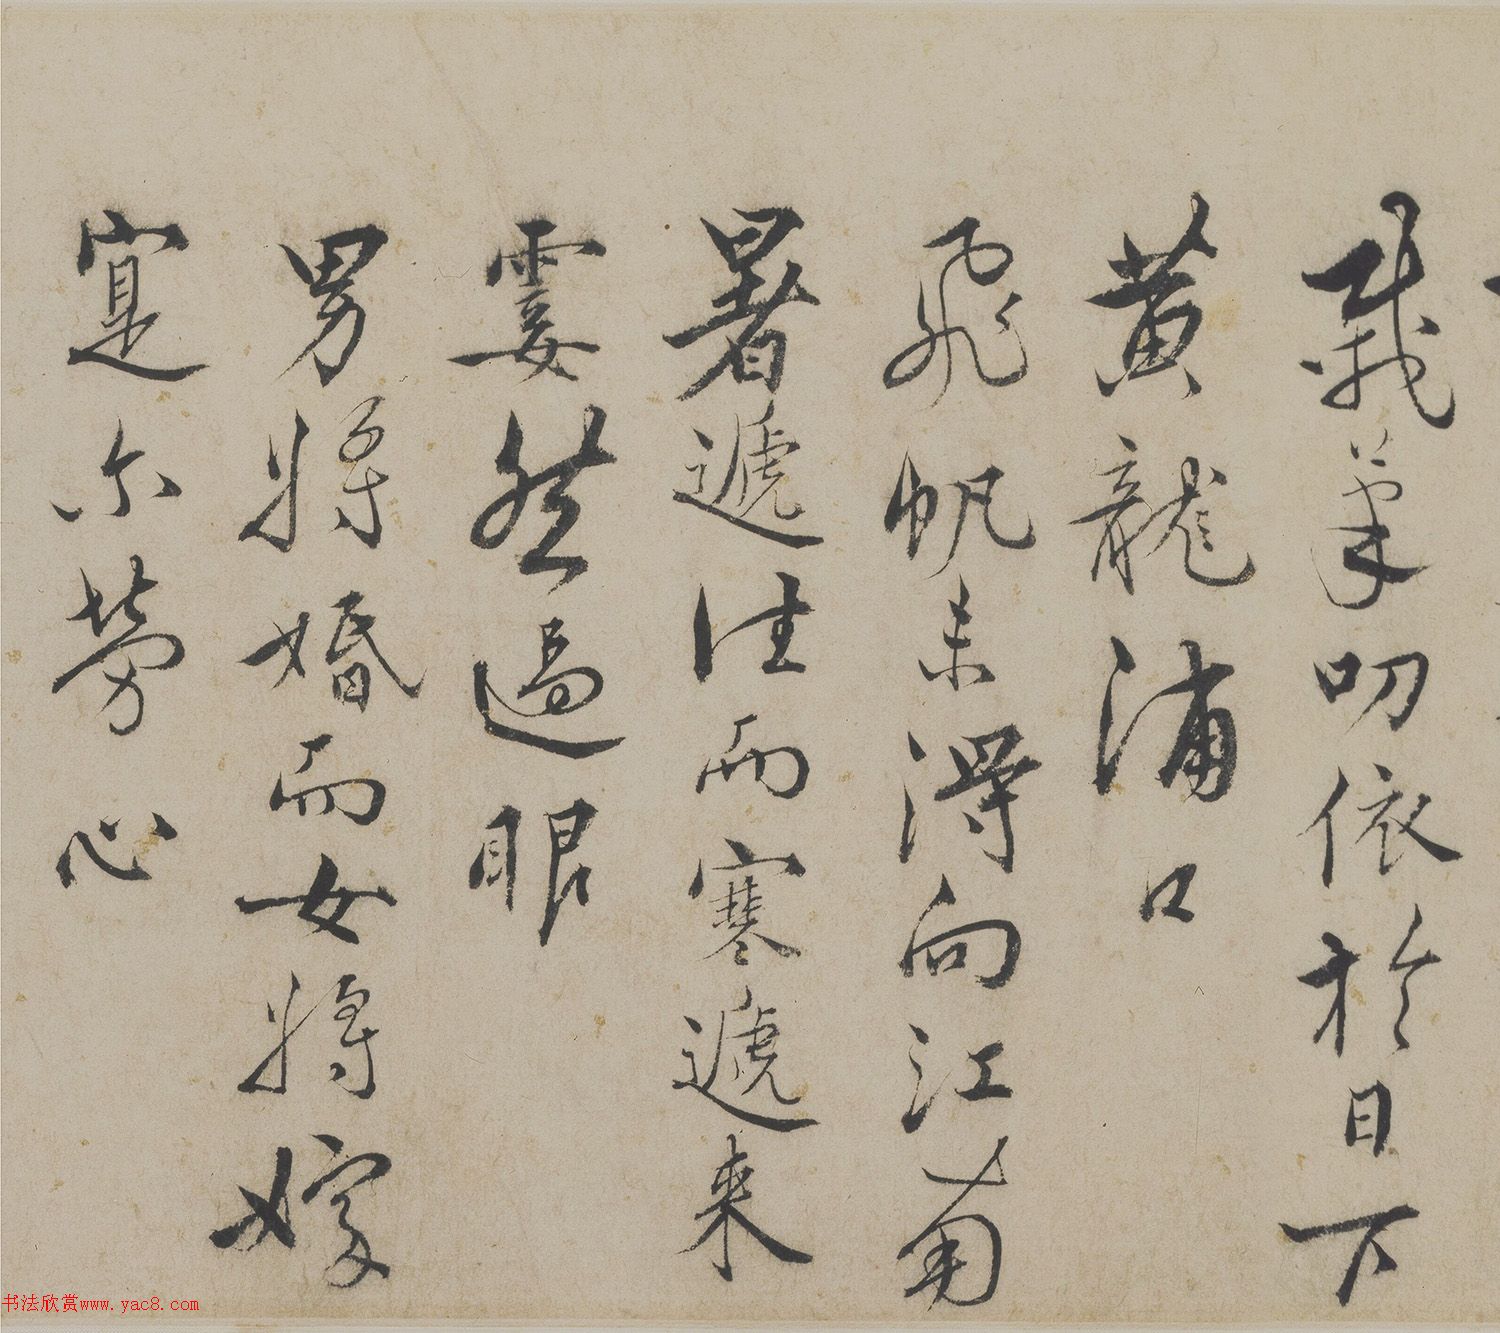 載筆叨依於日下
黄龍浦口
飛帆未得向江南
暑遞往而寒遞来
霎然過眼
男將婚而女將嫁
寔尔勞心
书法欣赏www.yac8.com